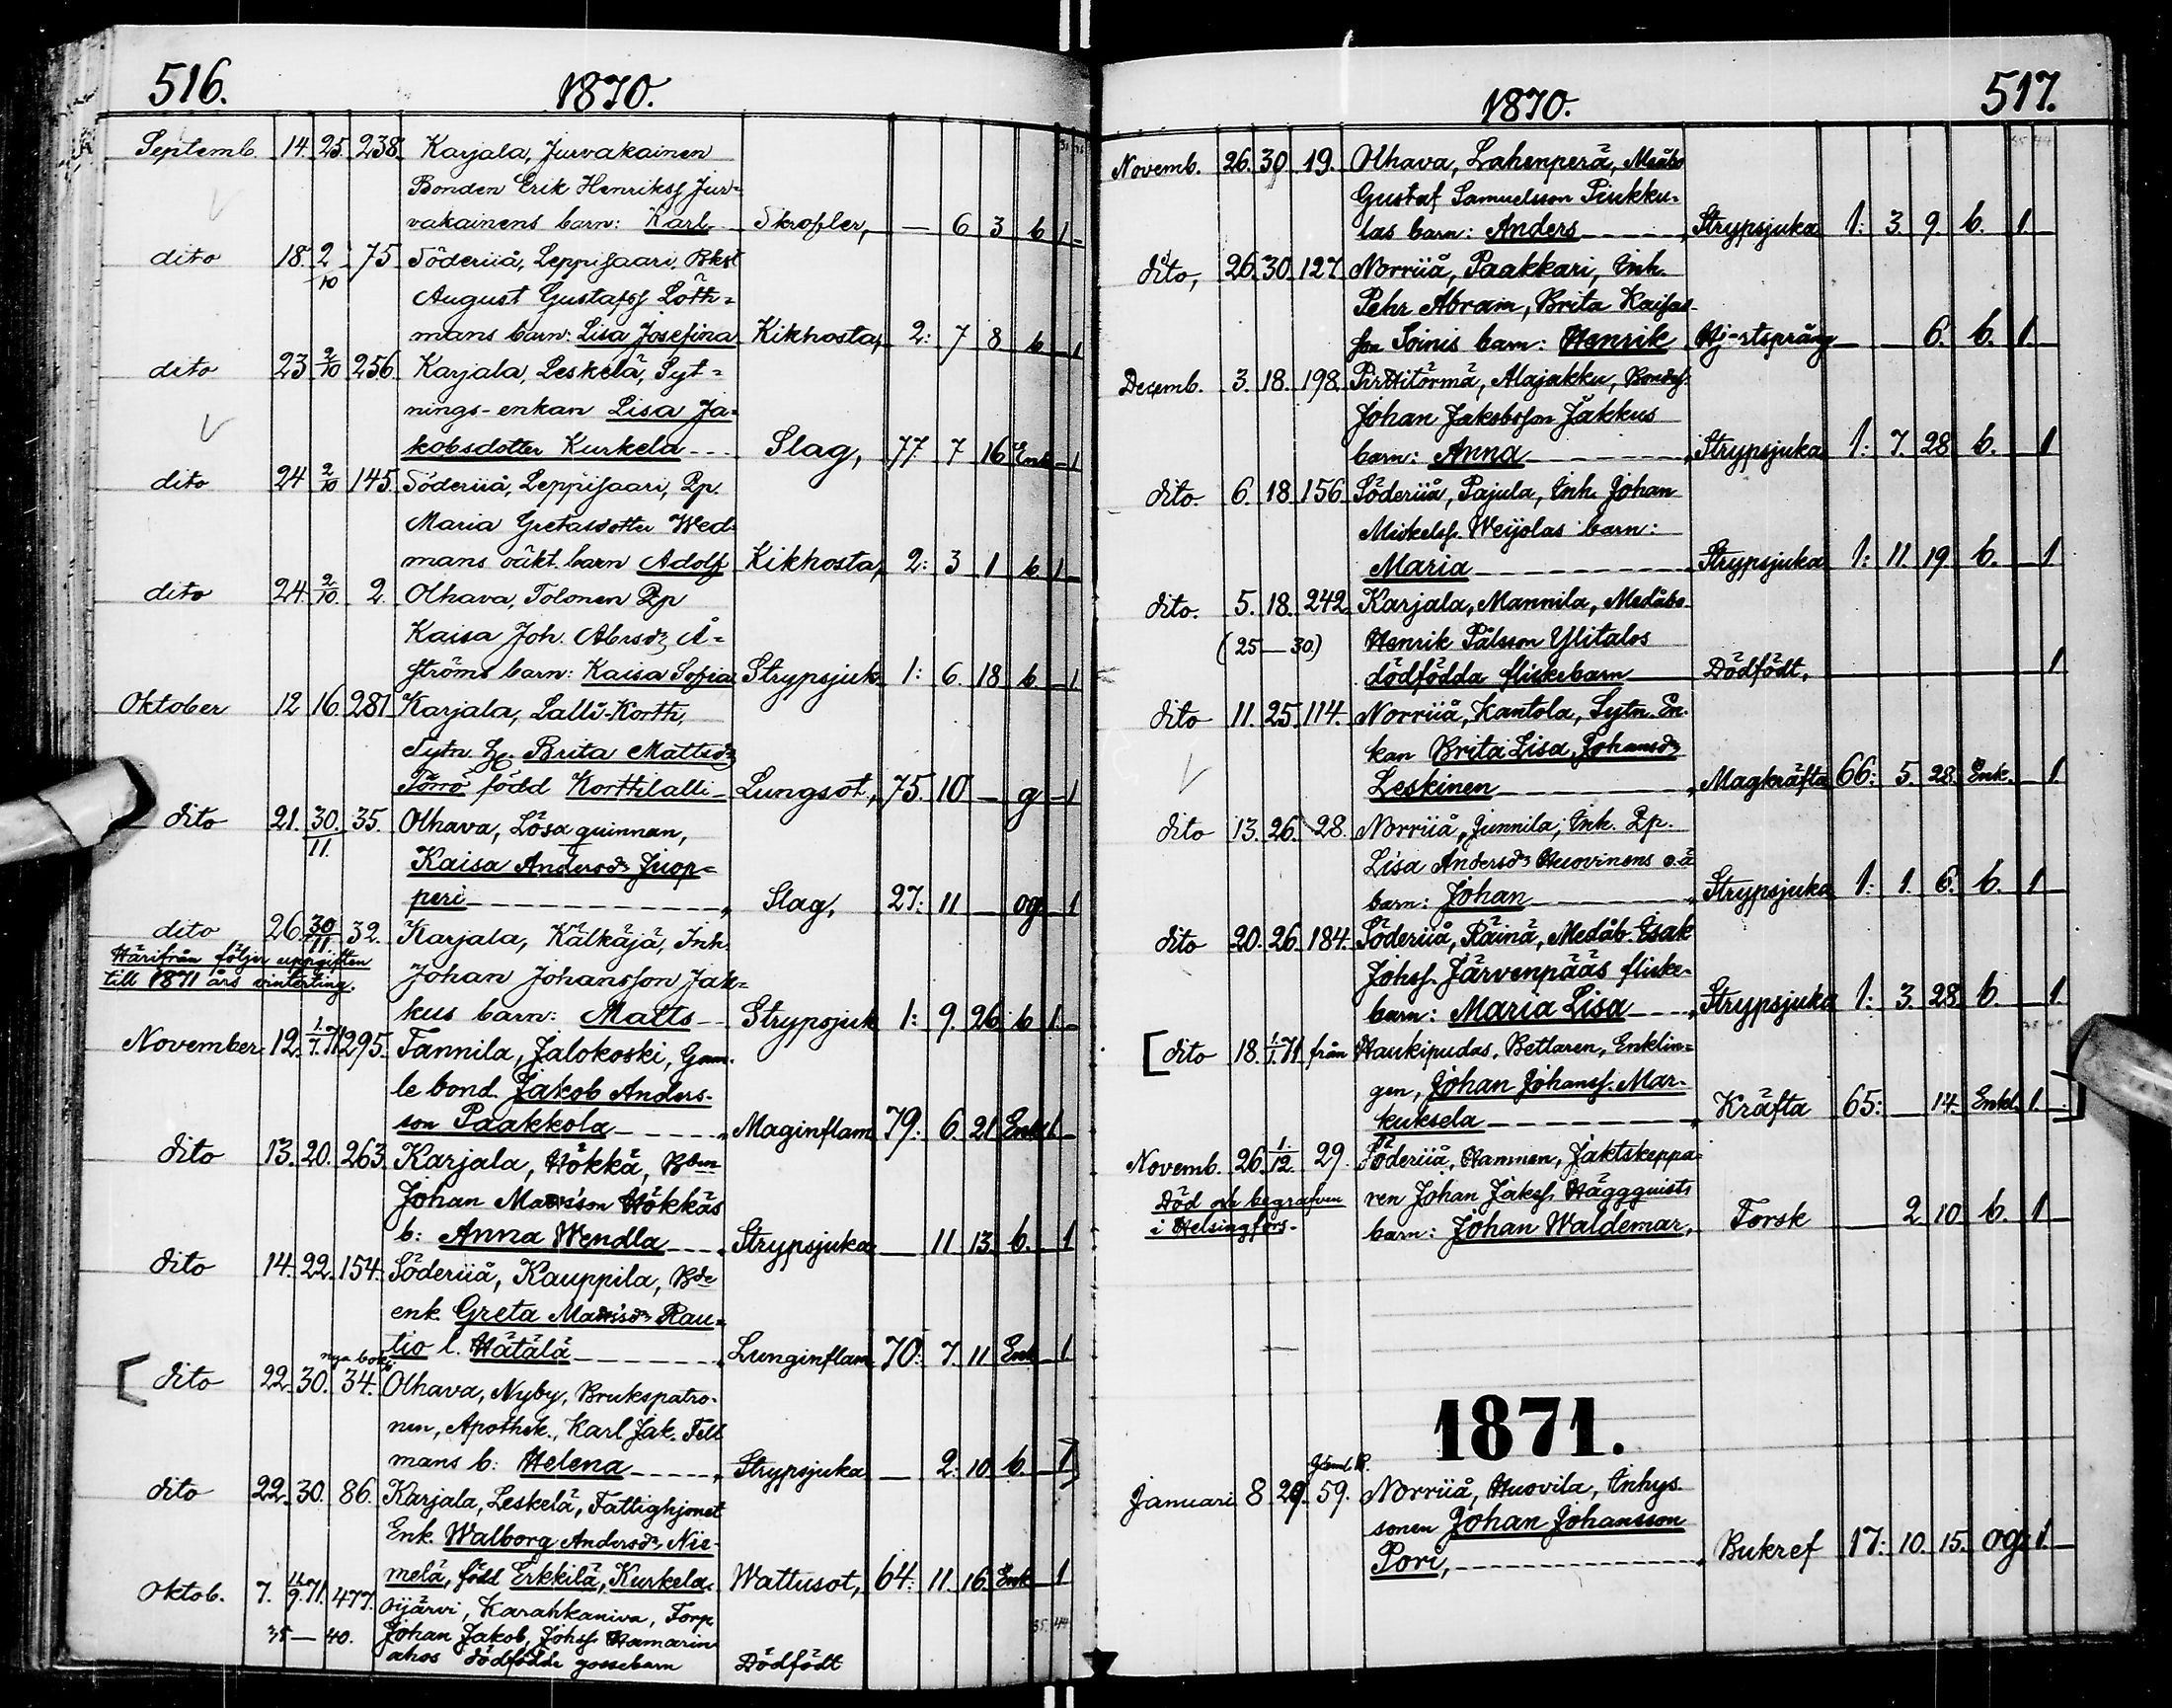 516.
1870.
Septemb. 14. 25. 238. Karjala, Jurvakainen
Bonden Erik Henrikss Jur-
vakainens barn: Karl Skrofler, — 6 3 b 1
dito 18. 2/10 75 Söderiiå, Leppisaari, Bkst
August Gustafss Löth-
mans barn: Lisa Josefina Kikhosta, 2: 7 8 b 1
dito 23 2/10 256. Karjala, Leskelä, Syt-
nings-enkan Lisa Ja-
kobsdotter Kurkela Slag, 77. 7 16 Enk 1
dito 24 2/10 145. Söderiiå, Leppisaari, Pp.
Maria Gretasdotter Wed-
mans oäkt. barn Adolf Kikhosta, 2: 3 1 b 1
dito 24. 2/10. 2. Olhava, Tolonen Pp
Kaisa Joh. Abrsdr Å-
ströms barn: Kaisa Sofia Strypsjuk. 1: 6. 18 b 1.
Oktober 12 16. 281 Karjala, Lalli-Kortti,
Sytn. Brita Mattsdr
Törrö född Korttilalli Lungsot, 75. 10 — g 1
dito 21. 30/11. 35. Olhava, Lösa quinnan,
Kaisa Andersdr Juop-
peri Slag, 27: 11 — og. 1
dito 26. 30/11 32. Karjala, Kälkäjä, Inh.
Härifrån följer uppgiften
till 1871 års vinterting.
Johan Johansson Jak-
kus barn: Matts Strypsjuk 1: 9. 26 b 1.
November 12. 1/1. 71 295. Tannila, Jalokoski, Gam-
le bond. Jakob Anders-
son Paakkola Maginflam 79: 6. 21 Enkl 1
dito 13. 20. 263. Karjala, Hökkä, Bben
Johan Mattsson Hökkäs
b: Anna Wendla Strypsjuka — 11 13. b. 1
dito 14. 22. 154. Söderiiå, Kauppila, Bde
enk. Greta Mattsdr Rau-
tio l. Hätälä Lunginflam. 70: 7. 11 Enk 1.
nya bok.
[ dito 22. 30. 34. Olhava, Nyby, Brukspatro-
nen, Apothek., Karl Jak. Fell-
mans b: Helena Strypsjuka — 2: 10. b. 1 ]
dito 22. 30. 86. Karjala, Leskelä, Fattighjonet
Enk. Walborg Andersdr Nie-
melä, född Erkkilä, Kurkela Wattusot, 64: 11. 16. Enk 1
Oktob. 7. 11/9. 71. 477. Oijärvi, Karahkaniva, Torp.
35 — 40. Johan Jakob, Johss. Hamarin-
ahos dödfödde gossebarn Dödfödt
35 44
1870.
517.
Novemb. 26. 30 19. Olhava, Lahenperä, Medåbo
Gustaf Samuelsson Piukku-
las barn: Anders Strypsjuka 1: 3. 9. b. 1
dito, 26. 30. 127. Norriiå, Paakkari, Inh.
Pehr Abram, Brita Kaisas-
son Soinis barn: Henrik Hjertsprång — — 6. b. 1.
Decemb. 3. 18. 198. Pirttitörmä, Alajakku, Bondes.
Johan Jakobsson Jakkus
barn: Anna Strypsjuka 1: 7. 28 b. 1
dito. 6. 18 156. Söderiiå, Pajula, Inh. Johan
Mickelss. Weijolas barn:
Maria Strypsjuka 1: 11. 19. b. 1
dito. 5. 18. 242. Karjala, Mannila, Medåbo.
(25 — 30.) Henrik Pålsson Ylitalos
dödfödda flickebarn Dödfödt, 1
dito 11. 25. 114. Norriiå, Kantola, Sytn. En-
kan Brita Lisa, Johansdr
Leskinen Magkräfta 66: 5. 28. Enk. 1
dito 13. 26. 28. Norriiå, Junnila, Inh. Pp.
Lisa Andersdr Huovinens o.ä
barn: Johan Strypsjuka 1: 1. 6. b. 1
dito 20. 26. 184. Söderiiå, Räinä, Medåb. Isak
Johss. Järvenpääs flicke-
barn: Maria Lisa Strypsjuka 1: 3. 28 b 1.
[ dito 18. 1/1. 71 från Haukipudas, Bettaren, Enklin-
gen, Johan Johanss. Mar-
kuksela Kräfta 65: — 14. Enkl. 1. ]
Novemb. 26. 1/12. 29. Söderiiå, Hamnen, Jaktskeppa-
Död och begrafven
i Helsingfors.
ren Johan Jakss. Häggquists
barn: Johan Waldemar, Torsk — 2 10 b. 1
1871.
Gaml. B.
Januari 8 29. 59. Norriiå, Huovila, Inhys-
sonen Johan Johansson
Pori, Bukref 17: 10. 15. og 1.